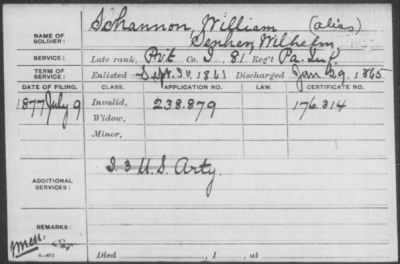 NAME OF SOLDIER: Schannon, William (alias)
Wilhelm
SERVICE: Late rank, Pvt Co. I, 81 Reg't Pa. Inf.
TERM OF SERVICE: Enlisted Sept. 30, 1861 Discharged Jan 29, 1865
DATE OF FILING. CLASS. APPLICATION NO. LAW. CERTIFICATE NO.
1877 July 9 Invalid, 238.879 176.314
Widow,
Minor,
ADDITIONAL SERVICES: I 3 U.S. Arty.
REMARKS:
Died , 1 , at